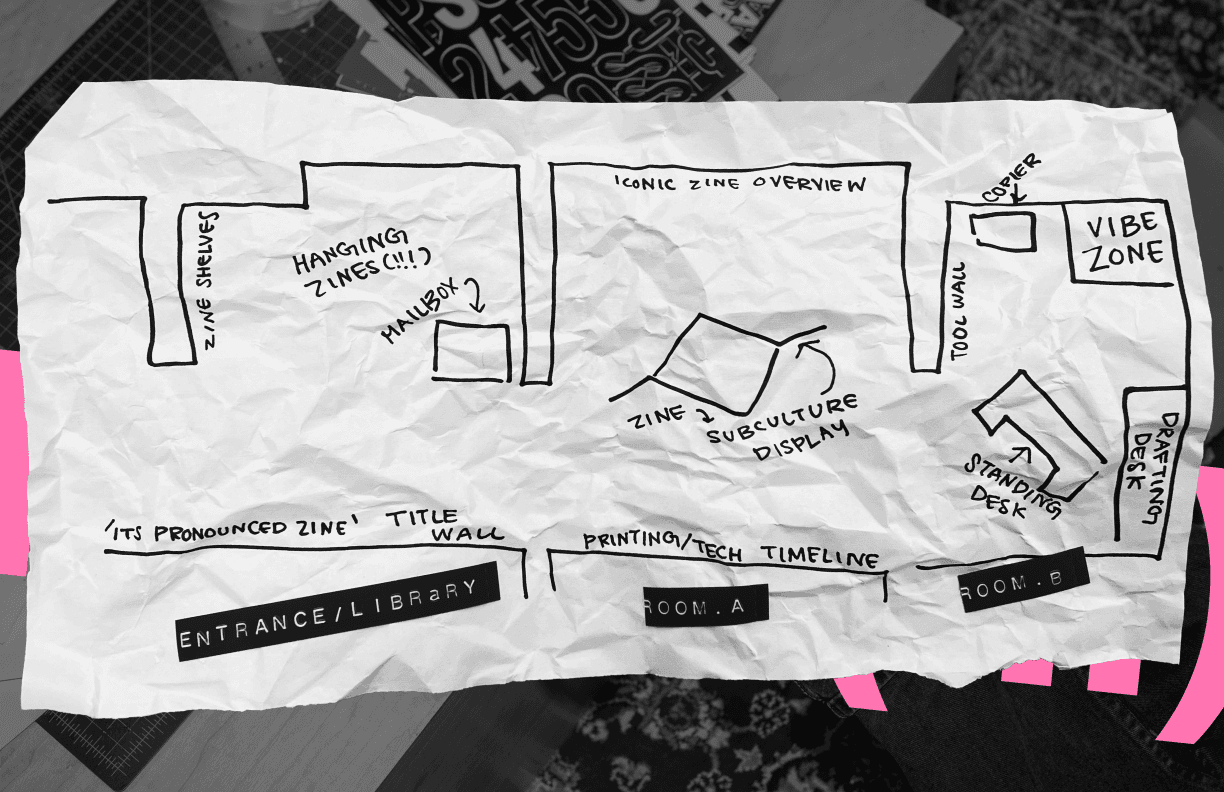 ICONIC ZINE OVERVIEW
COPIER
VIBE
ZONE
ZINE SHELVES
HANGING
ZINES (!!!)
MAILBOX
TOOL WALL
ZINE
SUBCULTURE
DISPLAY
STANDING
DESK
DRAFTING
DESK
'ITS PRONOUNCED ZINE' TITLE
WALL
PRINTING/TECH TIMELINE
ENTRANCE/LIBRaRY
ROOM.A
ROOM.B